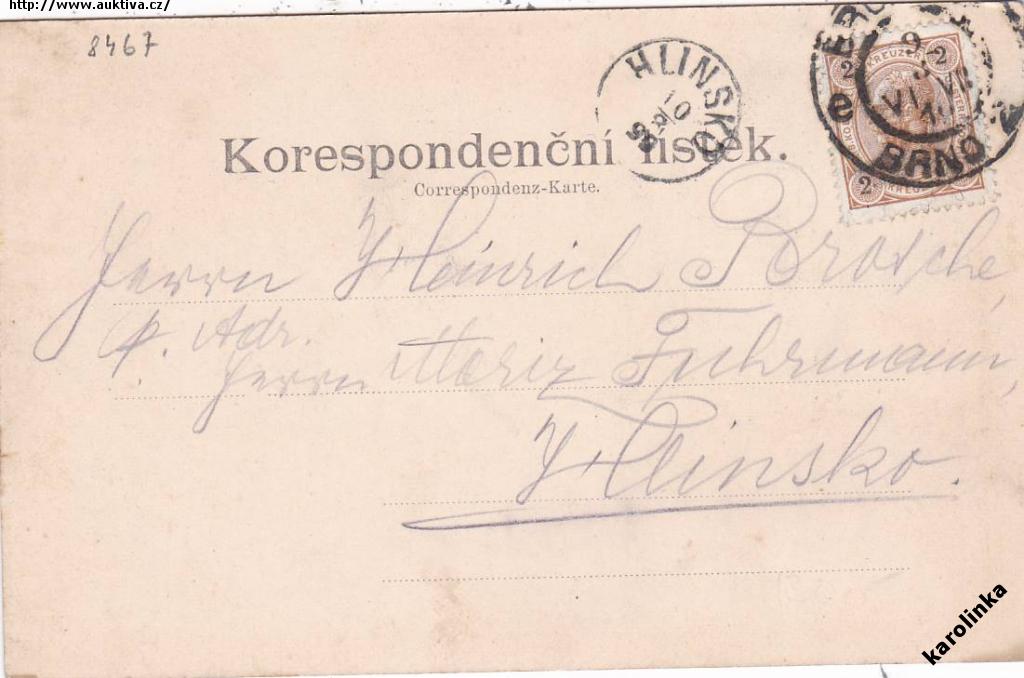 http://www.auktiva.cz/
8467
HLINSKO
BRNO
2 KREUZER 2
2
Korespondenční lístek.
Correspondenz-Karte.
Herrn Heinrich Brosche,
p. Adr.
Herrn Moriz Fuhrmann,
Hlinsko.
karolinka